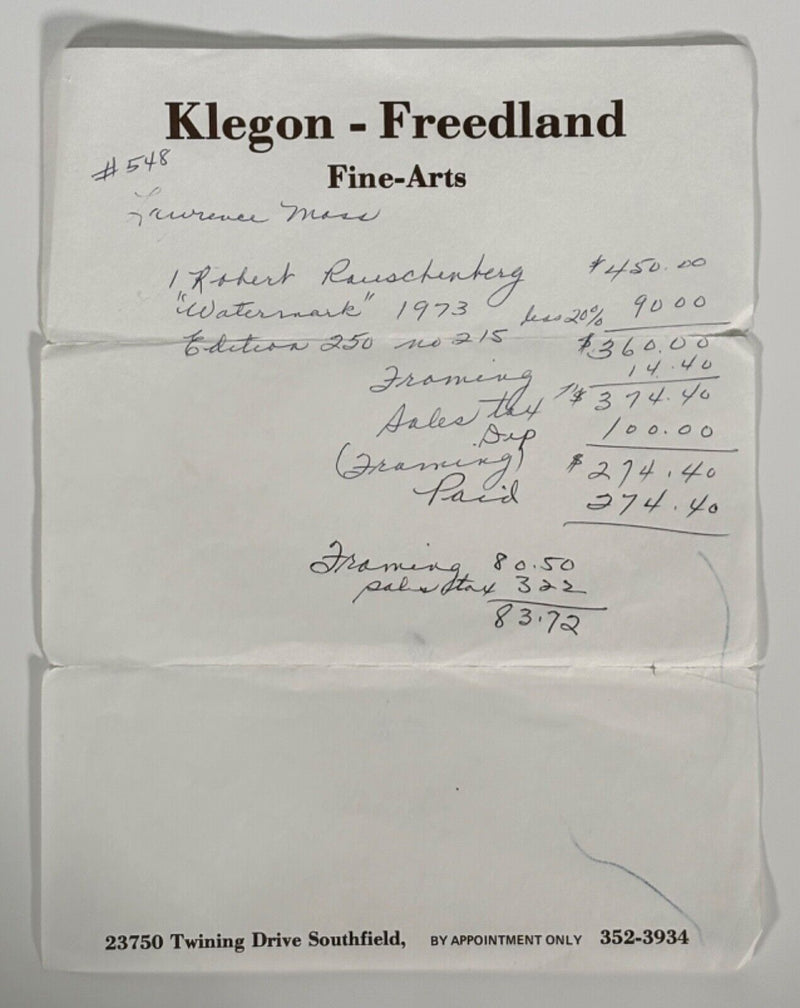 Klegon - Freedland
#548
Fine-Arts
Lawrence Moss
1 Robert Rauschenberg $450.00
"Watermark" 1973 less 20% 90 00
Edition 250 no 215 $360.00
Framing 14.40
Sales tax $374.40
Dep 100.00
(Framing) $274.40
Paid 274.40
Framing 80.50
sales tax 322
83.72
23750 Twining Drive Southfield, BY APPOINTMENT ONLY 352-3934